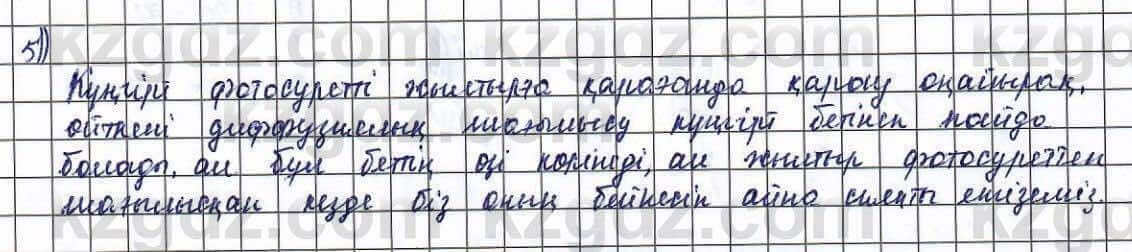 5)
Күңгірт фотосуретті жылтырға қарағанда қарау оңайырақ,
өйткені диффузиялық шағылысу күңгірт бетінен пайда
болады, ал бұл бетің өзі көрінеді, ал жылтыр фотосуреттен
шағылысқан кезде біз оның бейнесін айна сияқты
kzgdz.com kzgdz.com